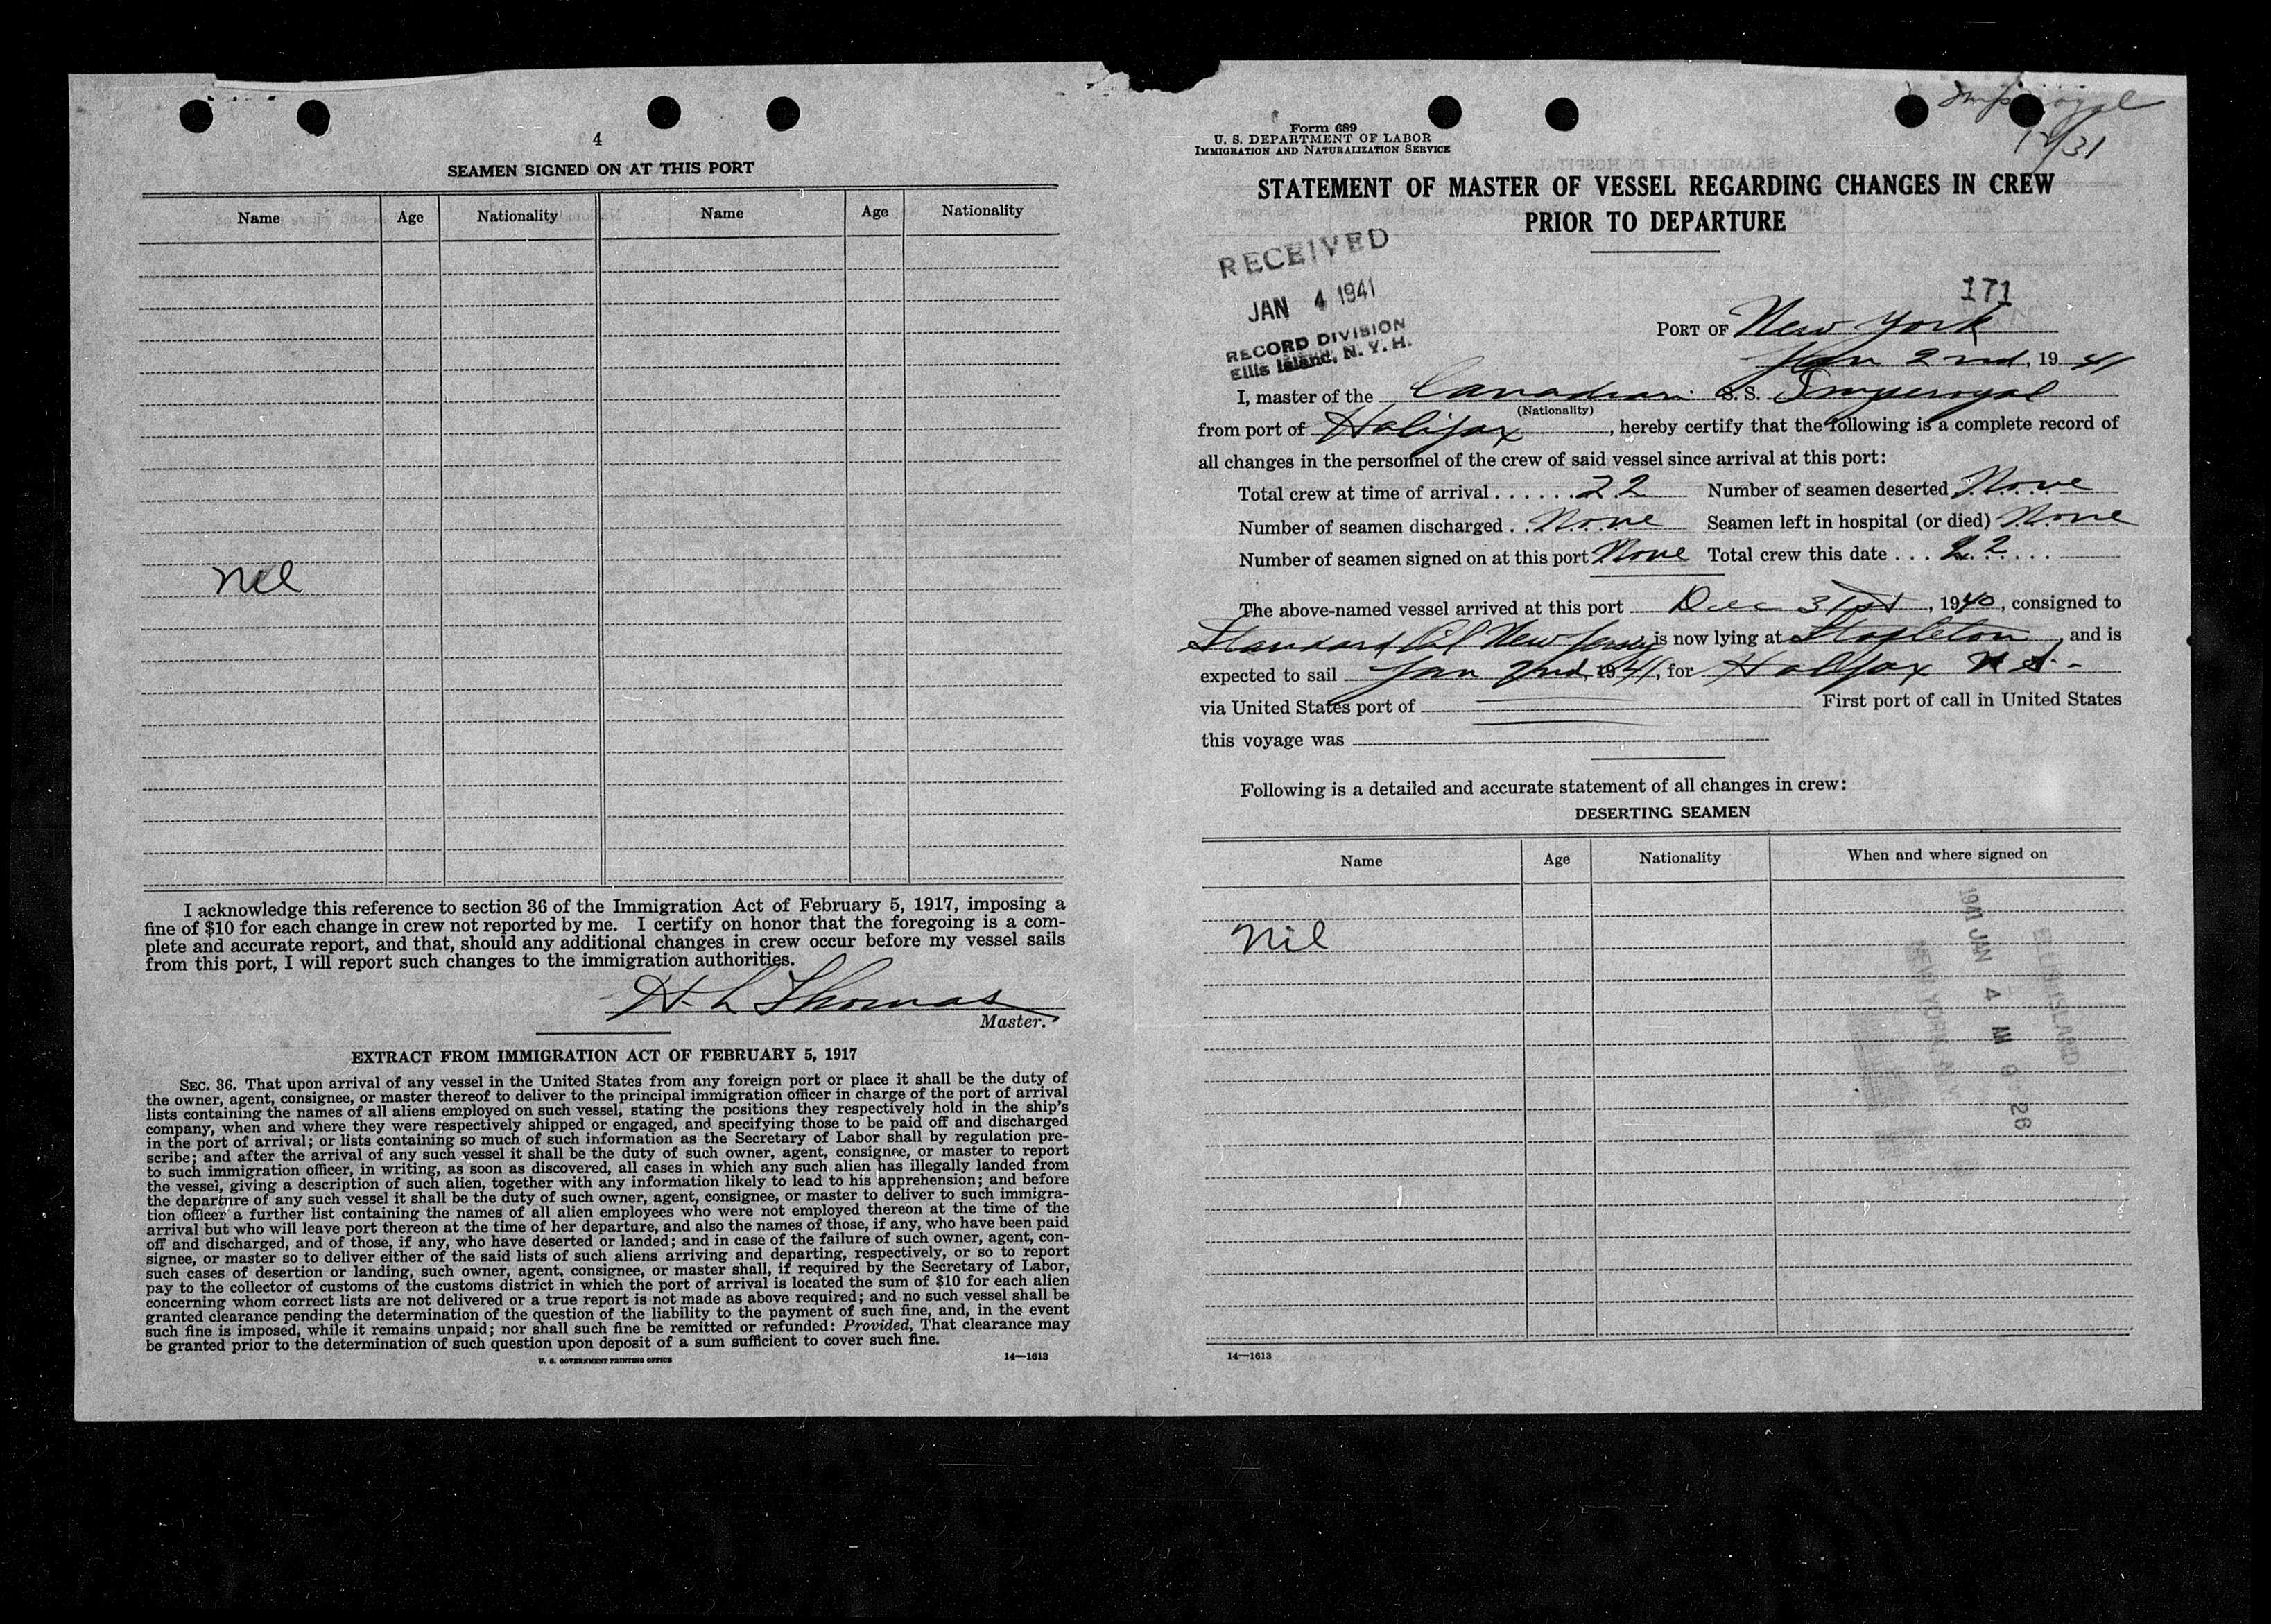 4
SEAMEN SIGNED ON AT THIS PORT
Name Age Nationality Name Age Nationality
Nil
I acknowledge this reference to section 36 of the Immigration Act of February 5, 1917, imposing a
fine of $10 for each change in crew not reported by me. I certify on honor that the foregoing is a com-
plete and accurate report, and that, should any additional changes in crew occur before my vessel sails
from this port, I will report such changes to the immigration authorities.
H. L Thomas
Master.
EXTRACT FROM IMMIGRATION ACT OF FEBRUARY 5, 1917
SEC. 36. That upon arrival of any vessel in the United States from any foreign port or place it shall be the duty of
the owner, agent, consignee, or master thereof to deliver to the principal immigration officer in charge of the port of arrival
lists containing the names of all aliens employed on such vessel, stating the positions they respectively hold in the ship's
company, when and where they were respectively shipped or engaged, and specifying those to be paid off and discharged
in the port of arrival; or lists containing so much of such information as the Secretary of Labor shall by regulation pre-
scribe; and after the arrival of any such vessel it shall be the duty of such owner, agent, consignee, or master to report
to such immigration officer, in writing, as soon as discovered, all cases in which any such alien has illegally landed from
the vessel, giving a description of such alien, together with any information likely to lead to his apprehension; and before
the departure of any such vessel it shall be the duty of such owner, agent, consignee, or master to deliver to such immigra-
tion officer a further list containing the names of all alien employees who were not employed thereon at the time of the
arrival but who will leave port thereon at the time of her departure, and also the names of those, if any, who have been paid
off and discharged, and of those, if any, who have deserted or landed; and in case of the failure of such owner, agent, con-
signee, or master so to deliver either of the said lists of such aliens arriving and departing, respectively, or so to report
such cases of desertion or landing, such owner, agent, consignee, or master shall, if required by the Secretary of Labor,
pay to the collector of customs of the customs district in which the port of arrival is located the sum of $10 for each alien
concerning whom correct lists are not delivered or a true report is not made as above required; and no such vessel shall be
granted clearance pending the determination of the question of the liability to the payment of such fine, and, in the event
such fine is imposed, while it remains unpaid; nor shall such fine be remitted or refunded: Provided, That clearance may
be granted prior to the determination of such question upon deposit of a sum sufficient to cover such fine.
U. S. GOVERNMENT PRINTING OFFICE 14—1613
12/31
Form 689
U. S. DEPARTMENT OF LABOR
IMMIGRATION AND NATURALIZATION SERVICE
STATEMENT OF MASTER OF VESSEL REGARDING CHANGES IN CREW
PRIOR TO DEPARTURE
RECEIVED
JAN 4 1941
RECORD DIVISION
Ellis Island, N. Y. H.
171
PORT OF New York
Jan 2nd, 1941
I, master of the Canadian S. S. Imperoyal
(Nationality)
from port of Halifax, hereby certify that the following is a complete record of
all changes in the personnel of the crew of said vessel since arrival at this port:
Total crew at time of arrival ...... 22 Number of seamen deserted None
Number of seamen discharged .. None Seamen left in hospital (or died) None
Number of seamen signed on at this port None Total crew this date ... 22 ...
The above-named vessel arrived at this port Dec 31st, 1940, consigned to
Standard Oil New Jersey is now lying at Stapleton, and is
expected to sail Jan 2nd, 1941, for Halifax N S.
via United States port of First port of call in United States
this voyage was
Following is a detailed and accurate statement of all changes in crew:
DESERTING SEAMEN
Name Age Nationality When and where signed on
Nil
1941 JAN 4 AM 26
ELLIS ISLAND
NEW YORK, N.Y.
14—1613